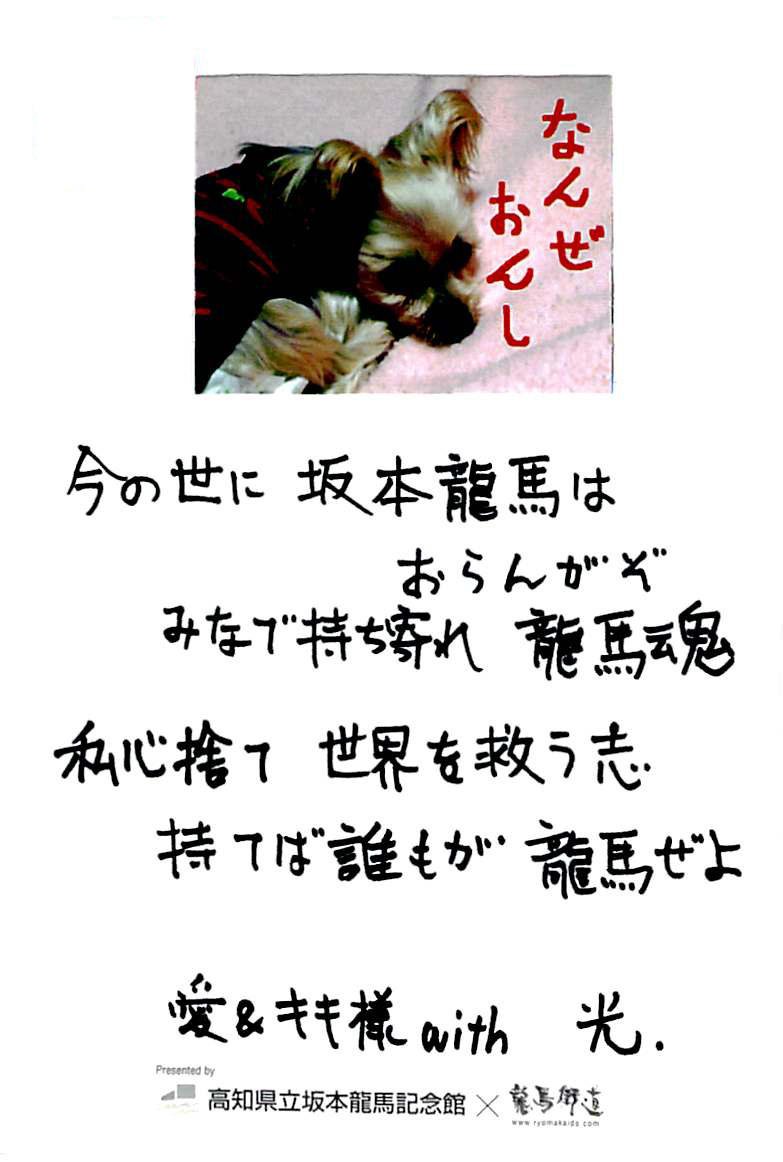 なんぜ
おんし
今の世に 坂本龍馬は
おらんがぞ
みなで持ち寄れ 龍馬魂
私心捨て 世界を救う志
持てば誰もが 龍馬ぜよ
愛&キキ様 with 光.
Presented by
高知県立坂本龍馬記念館 × 龍馬街道
www.ryomakaido.com